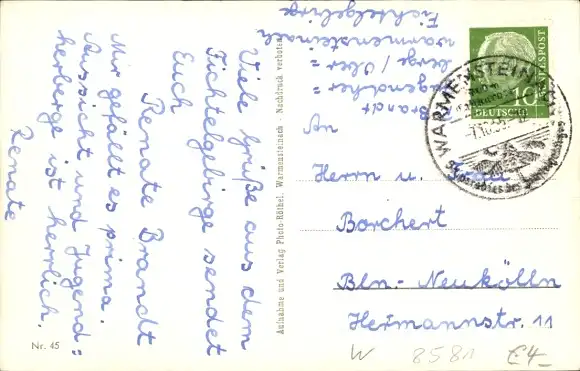 Viele Grüße aus dem
Fichtelgebirge sendet
Euch
Renate Brandt
Mir gefällt es prima.
Aussicht und Jugend=
herberge ist herrlich.
Renate
Nr. 45
Aufnahme und Verlag Photo-Röthel, Warmensteinach - Nachdruck verboten
Brandt
Jugendher=
berge / Ober=
warmensteinach
Fichtelgebirge
10
DEUTSCHE BUNDESPOST
WARMENSTEINACH
An
Herrn u. Frau
Borchert
Bln.- Neukölln
Hermannstr. 11
W 8581 E4-